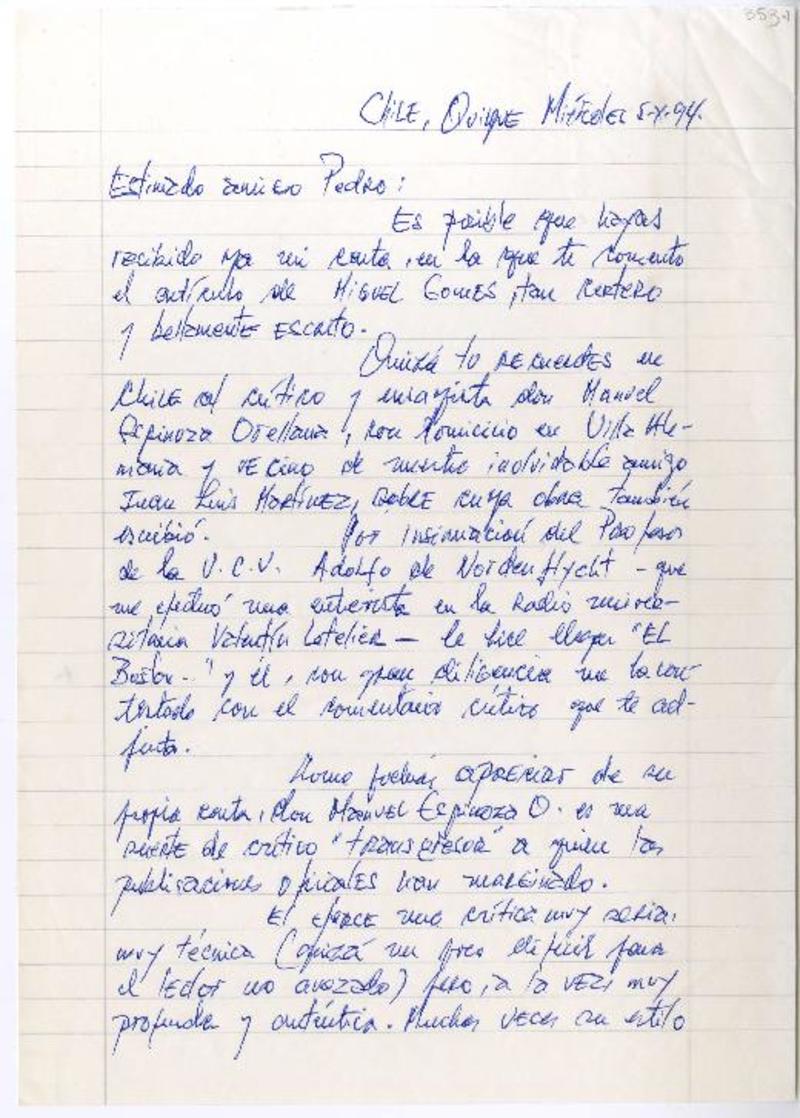 353-1
Chile, Quilpué Miércoles 5-X-94.
Estimado amigo Pedro:
Es posible que hayas
recibido ya mi carta, en la que te comento
el artículo de Miguel Gomes, tan certero
y bellamente escrito.
Quizá tú recuerdes en
Chile al crítico y ensayista don Manuel
Espinoza Orellana, con domicilio en Villa Ale-
mania y vecino de nuestro inolvidable amigo
Juan Luis Martínez, sobre cuya obra también
escribió. Por insinuación del Profesor
de la U.C.V. Adolfo de Nordenflycht - que
me efectuó una entrevista en la Radio univer-
sitaria Valentín Letelier - le hice llegar "El
y él, con gran diligencia me ha con-
testado con el comentario crítico que te ad-
junto.
Como podrás apreciar de su
propia carta, don Manuel Espinoza O. es una
suerte de crítico "transgresor" a quien las
publicaciones oficiales han marginado.
El ejerce una crítica muy seria,
muy técnica (quizá un poco difícil para
el lector no avezado) pero, a la vez, muy
profunda y auténtica. Muchas veces su estilo